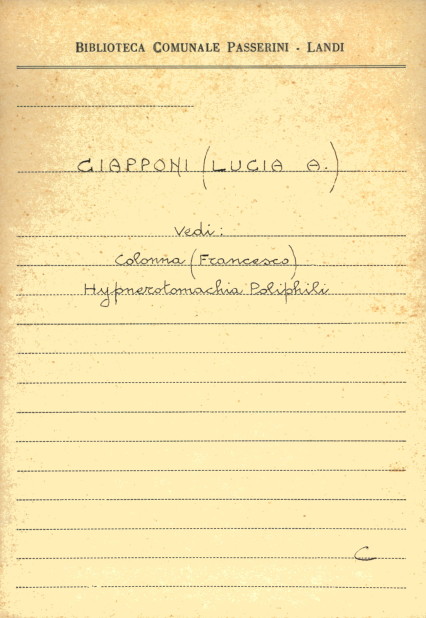 BIBLIOTECA COMUNALE PASSERINI - LANDI
GIAPPONI (LUCIA A.)
Vedi:
Colonna (Francesco)
Hypnerotomachia Poliphili
C